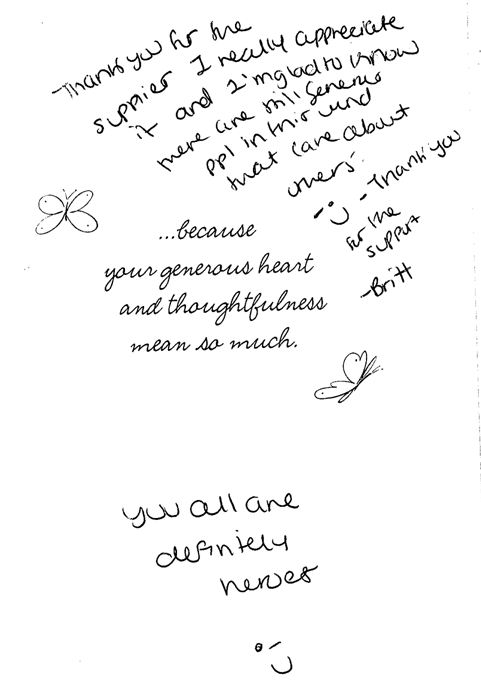 Thank you for the
supplier I really appreciate
it and I'm glad to know
there are still generous
ppl in this world
that care about
others.
- Thank you
for the
support
-Britt
...because
your generous heart
and thoughtfulness
mean so much.
you all are
definitely
heroes